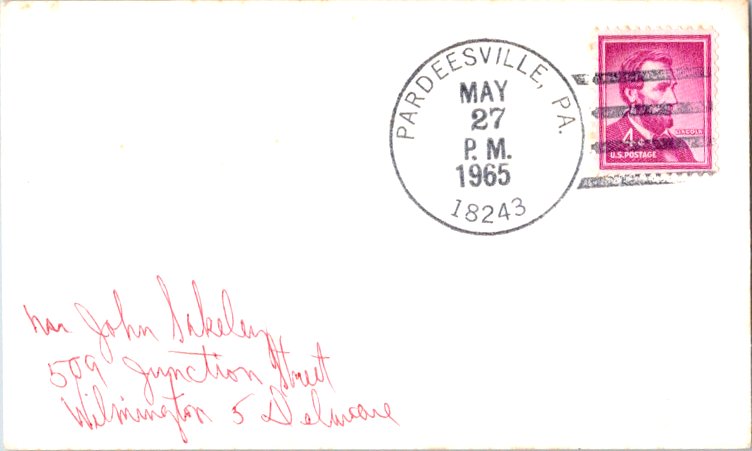 PARDEESVILLE, PA.
MAY
27
P.M.
1965
18243
LINCOLN
4¢
U.S. POSTAGE
Mr John Sakeley
509 Junction Street
Wilmington 5 Delware